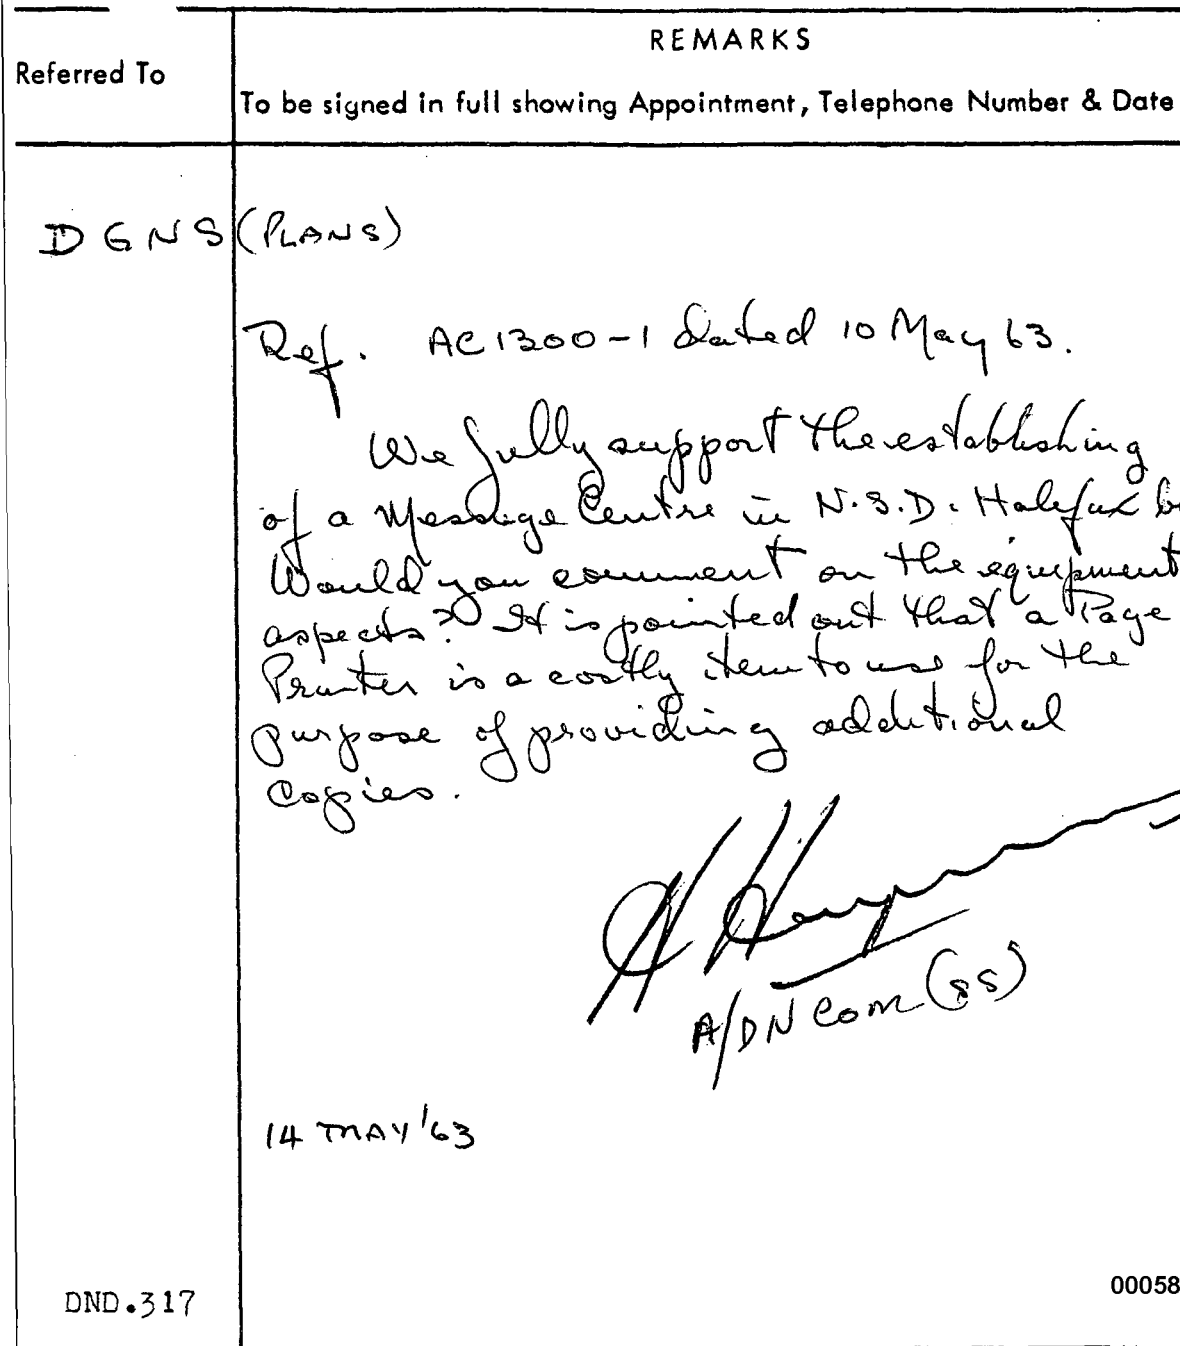 REMARKS
Referred To
To be signed in full showing Appointment, Telephone Number & Date
DGNS (PLANS)
Ref. AC1300-1 dated 10 May 63.
We fully support the establishing
of a Message Centre in N.S.D. Halifax
Would you comment on the equipment
aspects? It is pointed out that a Page
Printer is a costly item to use for the
purpose of providing additional
copies.
A/DN Com (SS)
14 MAY '63
DND.317
00058